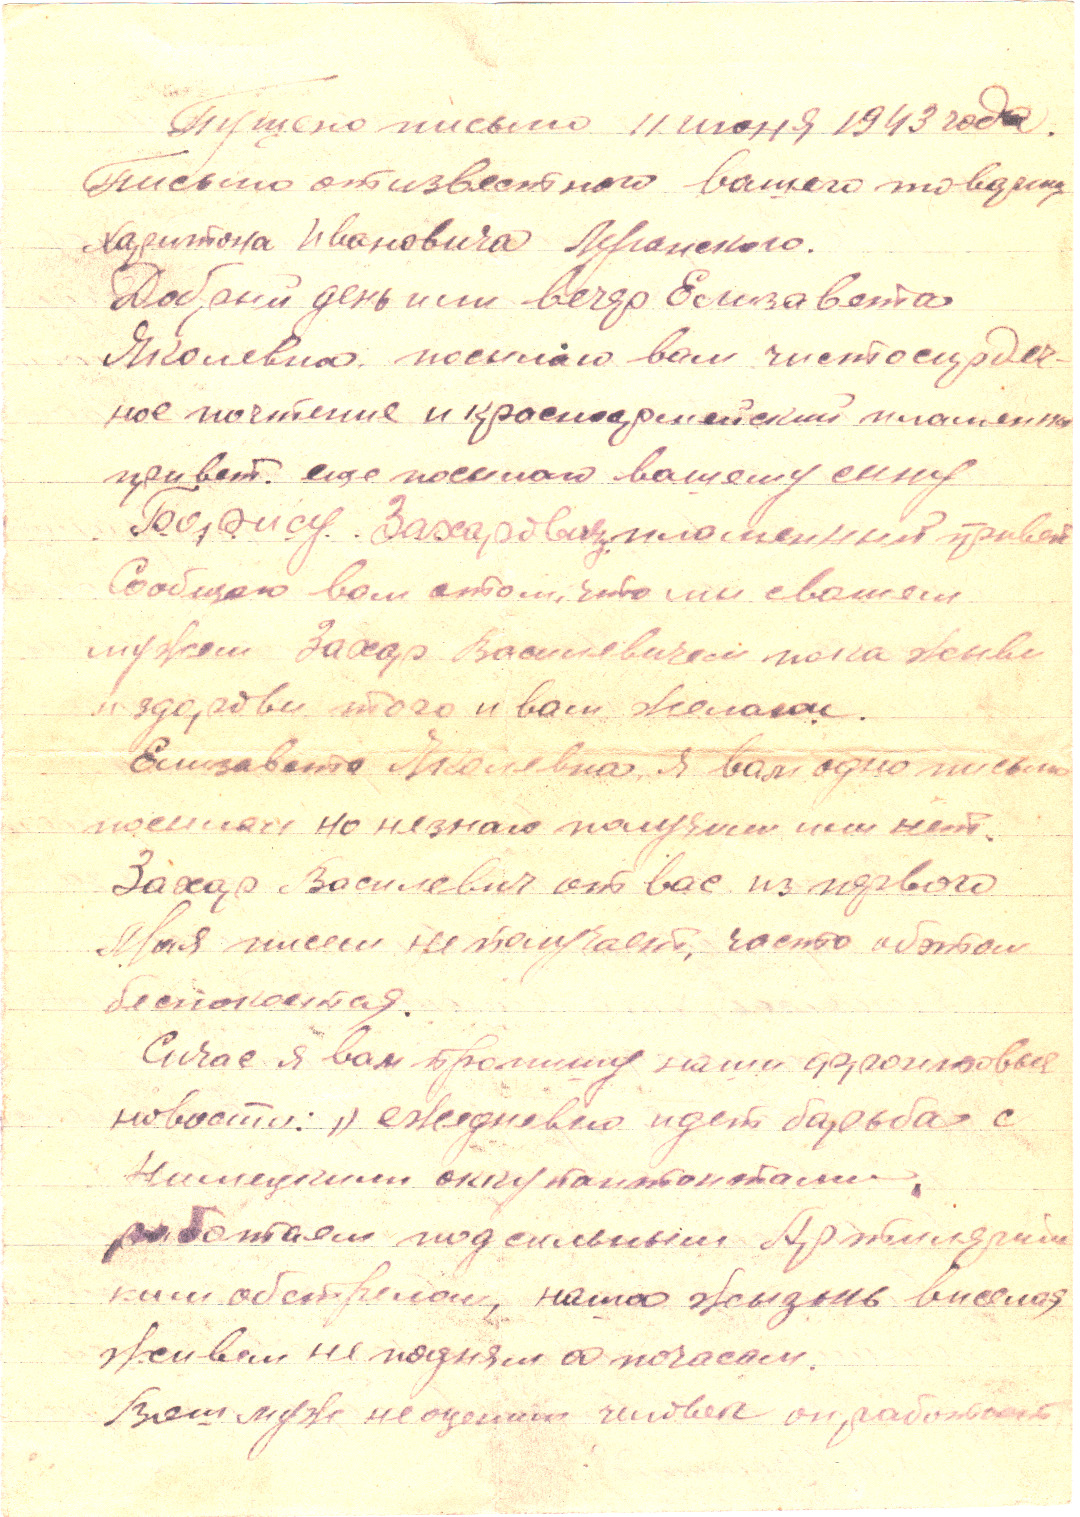 Пущено письмо 11 июня 1943 года.
Письмо отизвестного вашего товарища
Харитона Ивановича
Добрий день или вечер Елизавета
Яколевна. посилаю вам чистосердеч-
ное почтение и красноармейский пламенни
привет. еще посилаю вашему сину
Борису. Захаровичу, пламенний привет
Сообщаю вам отом, что ми свашем
мужем Захар Василевичем пока живи
и здорови того и вам желаем.
Елизавета Яколевна, я вам одно письмо
посилал но незнаю получили или нет.
Захар Василевич от вас из первого
Мая писем не получает, часто обэтом
беспокоится.
Сичас я вам пропишу наши фронтовые
новости: ежедневно идет барьба с
Нимецкими
работаем под сильным Артилерий
ким обстрелом, наша жызнь виселая
Живем не подням а почасам.
Ваш муж неоценим человек он работает